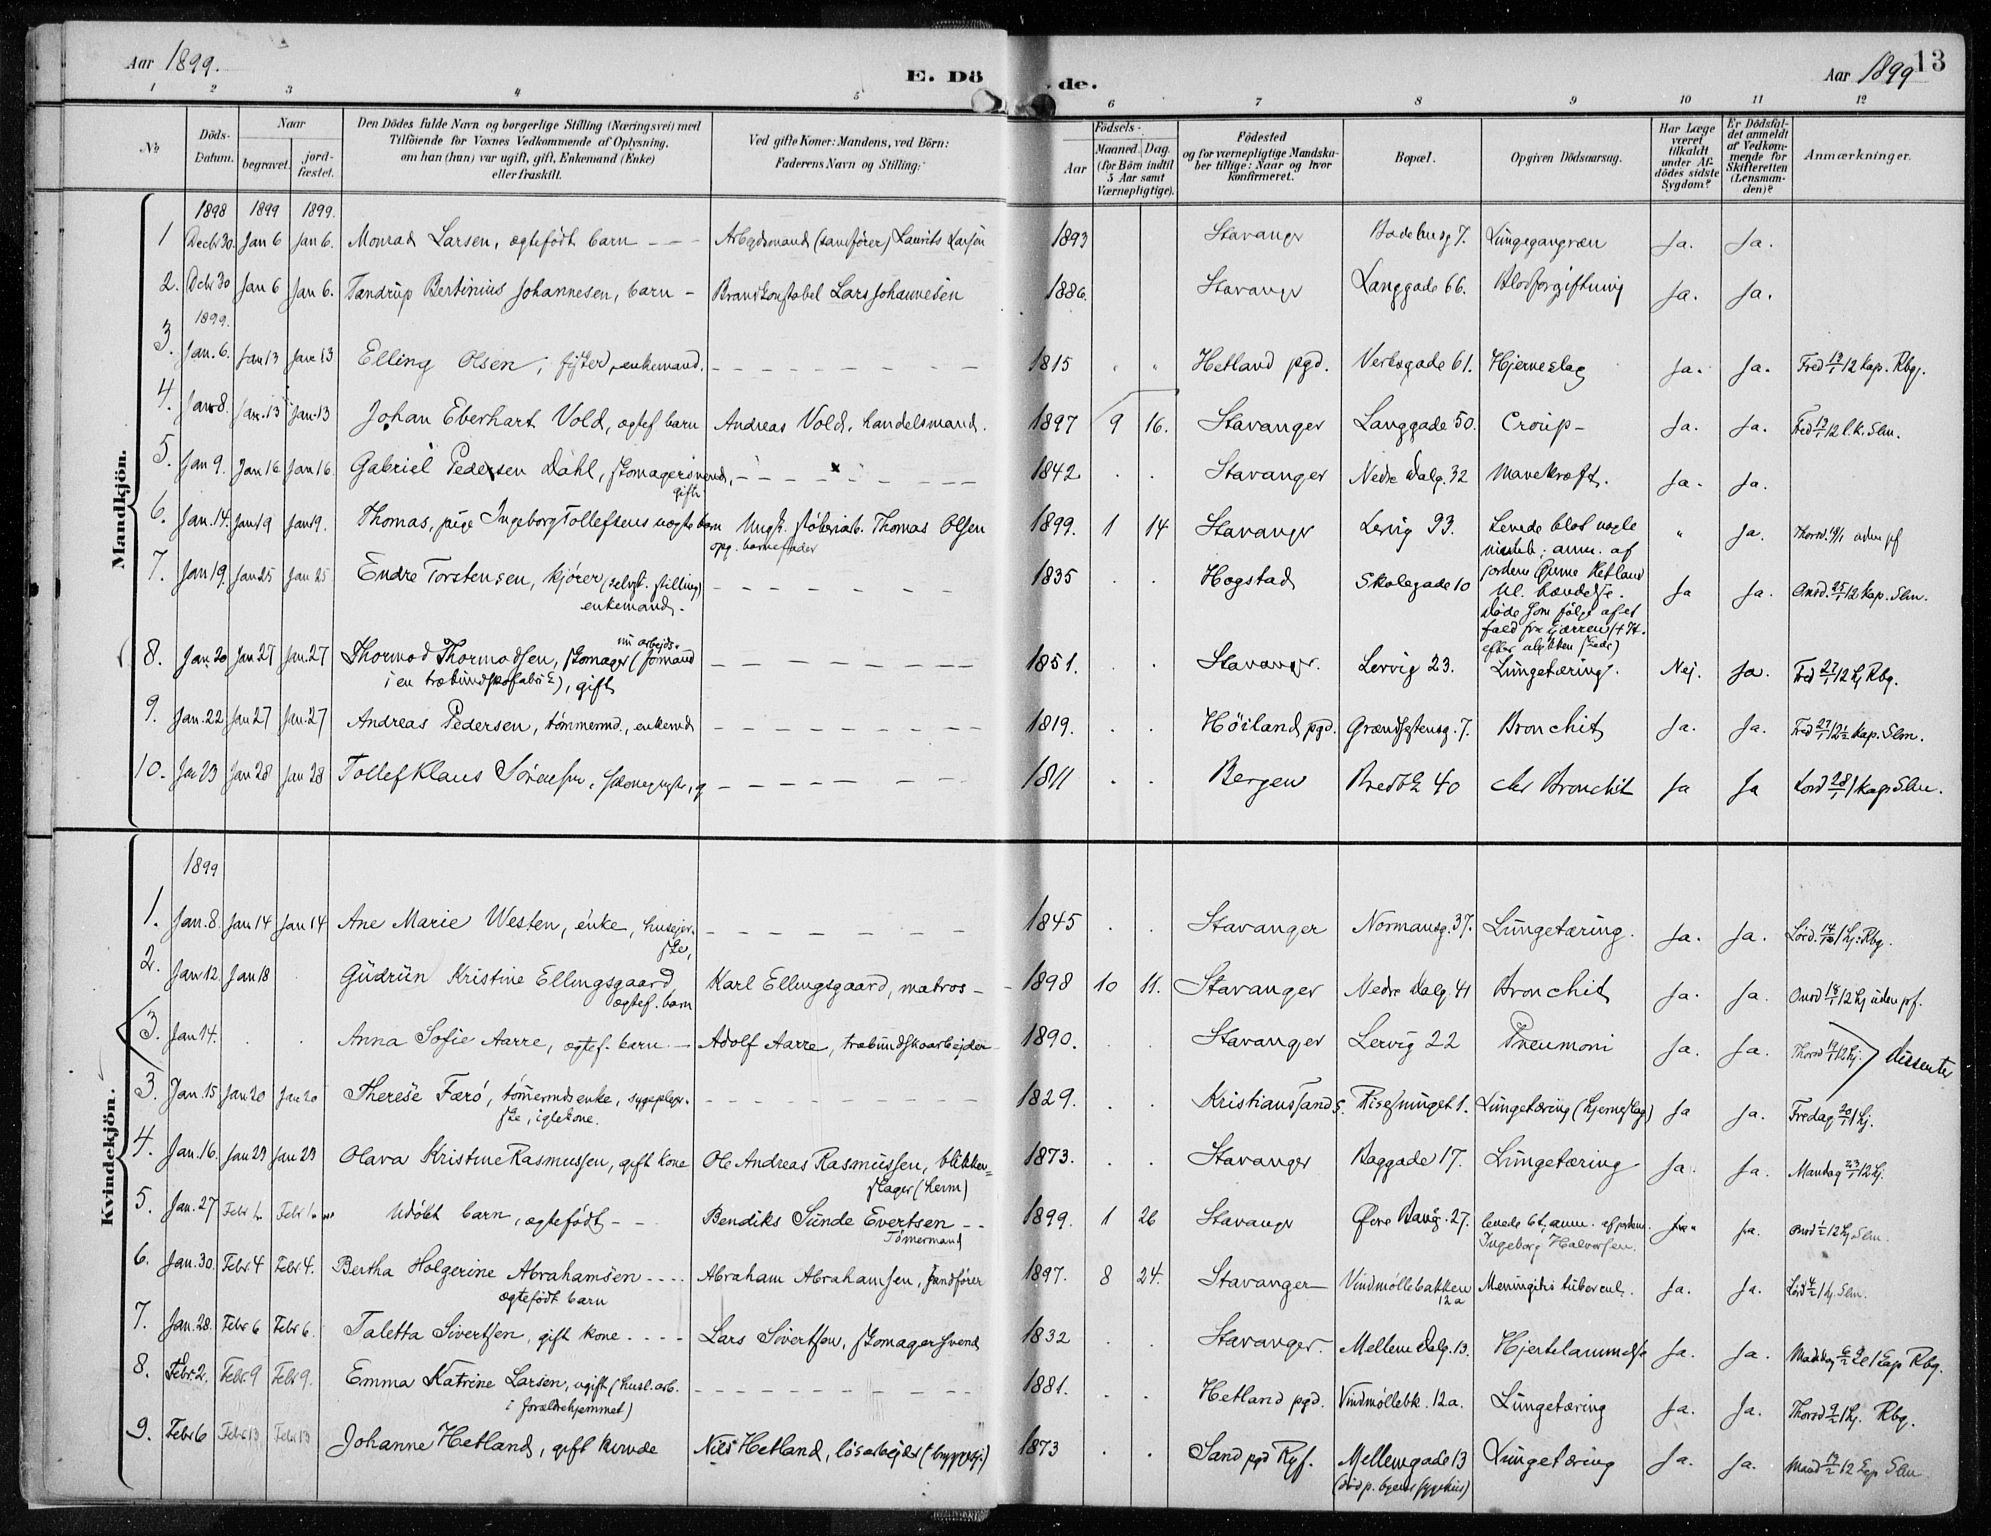 Aar 1899.
E. Dö de.
Aar 1899
13
1 2 3 4 5 6 7 8 9 10 11 12
No
Döds-Datum.
Naar
begravet.
jord-fæstet.
Den Dödes fulde Navn og borgerlige Stilling (Næringsvei) med
Tilföiende for Voxnes Vedkommende af Oplysning.
om han (hun) var ugift, gift, Enkemand (Enke)
eller fraskilt.
Ved gifte Koner: Mandens, ved Börn:
Faderens Navn og Stilling:
Födsels-
Aar
Maaned. Dag.
(for Börn indtil
5 Aar samt
Værnepligtige).
Födested
og for værnepligtige Mandska-
ber tillige: Naar og hvor
konfirmeret.
Bopæl.
Opgiven Dödsaarsag.
Har Læge
været
tilkaldt
under Af-
dödes sidste
Sygdom?
Er Dödsfal-
det anmeldt
af Vedkom-
mende for
Skifteretten
(Lensman-
den)?
Anmærkninger.
Mandkjön.
1898 1899 1899.
1 Decbr 30. Jan 6 Jan 6. Monrad Larsen, ægtefödt barn Arbejdsmand Laurits Larsen 1893 Stavanger Lungegangræn Ja. Ja.
2. Dcbr 30 Jan 6 Jan 6. Tandrup Bertinius Johannesen, barn Brandkonstabel Lars Johannesen 1886. Stavanger Langgade 66. Blodforgiftning Ja. Ja.
1899.
3. Jan. 6. Jan 13 Jan 13 Elling Olsen, fisker, enkemand. 1815 Hetland pgd. Verksgade 61. Hjerneslag Ja. Ja. Fred 13/1 12 kap. Rbg.
4. Jan 8. Jan. 13 Jan. 13 Johan Eberhart Vold, ægtef barn Andreas Vold, handelsmand. 1897 9 16. Stavanger Langgade 50. Croup Ja. Ja. Fred 13/1 12 l.k. Slm.
5. Jan 9. Jan 16 Jan 16. Gabriel Pedersen Dahl, skomagersvend, gift 1842 Stavanger Nedre Dalg. 32 Mavekræft. Ja. Ja.
6. Jan. 14. Jan 19 Jan 19. Thomas, pige Ingeborg Tollefsens uægte barn Ungk. støberiarb. Thomas Olsen
opg. barnefader 1899. 1 14 Stavanger Lervig 33. Levede blot nogle
minutt; anm. af
jordem. Hetland
Ja. Thorsd. 19/1 uden pf
7. Jan 19. Jan 25 Jan 25 Endre Torstensen, kjører (selvst. stilling)
enkemand. 1835 Hogstad Skolegade 10 Ul. hændelse.
Døde som følge af et
fald fra kjærren
Ja Ja. Onsd. 25/1 12 kap. Slm.
8. Jan 20 Jan 27 Jan. 27 Thormod Thormodsen, skomager (nu arbejds-
formand
i en træbundskofabrik), gift 1851. Stavanger. Lervig 23. Lungetæring. Nej. Ja. Fred 27/1 12 kj Rbg.
9. Jan. 22 Jan 27 Jan. 27 Andreas Pedersen, tömmermd., enkemd 1819. Höiland pgd. Grændsestensg. 7. Bronchit Ja. Ja. Fred 27/1 12½ kap. Slm.
10. Jan 23 Jan 28 Jan 28 Tollef Klaus Sørensen, g 1811 Bergen Bredbk 40 chr Bronchit Ja Ja Lörd 28/1 1 kap. Slm.
Kvindekjön.
1899
1. Jan. 8. Jan 14 Jan 14 Ane Marie Westen, enke, husejer-
ske, 1845 Stavanger Normansg. 37. Lungetæring. Ja. Ja. Lörd. 14/1 1 kj: Rbg.
2. Jan 12. Jan 18 Gudrun Kristine Ellingsgaard
ægtef. barn Karl Ellingsgaard, matros 1898 10 11. Stavanger Nedre Dalg. 41 Bronchit Ja. Ja. Onsd 18/1 12 kj uden pf.
3. Jan 14. Anna Sofie Aarre, ægtef. barn Adolf Aarre, træbundskoarbejder 1890. Stavanger Lervig 22 Pneumoni Ja. Ja. Thorsd 19/1 12 kj. dissenter
3. Jan. 15 Jan 20 Jan 20 Therese Færö, tömermdsenke, sygeplejer-
ske, iglekone. 1829. Kristianssand S. Risesmuget 1. Lungetæring (hjerneslag) Ja Ja. Fredag 20/1 1 kj.
4. Jan. 16. Jan 23 Jan 23 Olava Kristine Rasmussen, gift kone Ole Andreas Rasmussen, blikken-
slager (herm) 1873. Stavanger Baggade 17. Lungetæring Ja. Ja. Mandag 23/1 12 kj.
5. Jan. 27 Febr 1. Febr 1. Udöbt barn, ægtefödt Bendiks Sunde Evertsen
Tømermand 1899. 1 26 Stavanger Øvre Bang. 27. levede 6t, anm. af jordem.
Ingeborg Halvorsen. Ja. Onsd 1/2 12 kj. Slm.
6. Jan. 30. Febr 4 Febr 4. Bertha Holgerine Abrahamsen
ægtefödt barn Abraham Abrahamsen, sandfører 1897. 8 24. Stavanger Vindmøllebakken
12a Meningitis tubercul. Ja. Ja. Lörd 4/2 1 kj. Slm.
7. Jan. 28. Febr 6 Febr 6. Taletta Sivertsen, gift kone Lars Sivertsen, skomagersvend 1832 Stavanger. Mellem Dalg. 13. Hjertelammelse Ja. Ja. Mandag 6/2 kap Rbg.
8. Febr. 2. Febr 9 Febr 9. Emma Katrine Larsen, ugift (husl. arb.
i forældrehjemmet) 1881. Hetland pgd. Vindmøllebk. 12a. Lungetæring Ja. Ja. Thorsd 9/2 1 kj. Rbg.
9. Febr 6 Febr 13 Febr 13 Johanne Hetland, gift kvinde Nils Hetland, lösarbejder 1873 Sand pgd Ryf. Mellemgade 13
(död p. byens sygehus) Lungetæring Ja. Ja. Mand 13/2 12 kap Slm